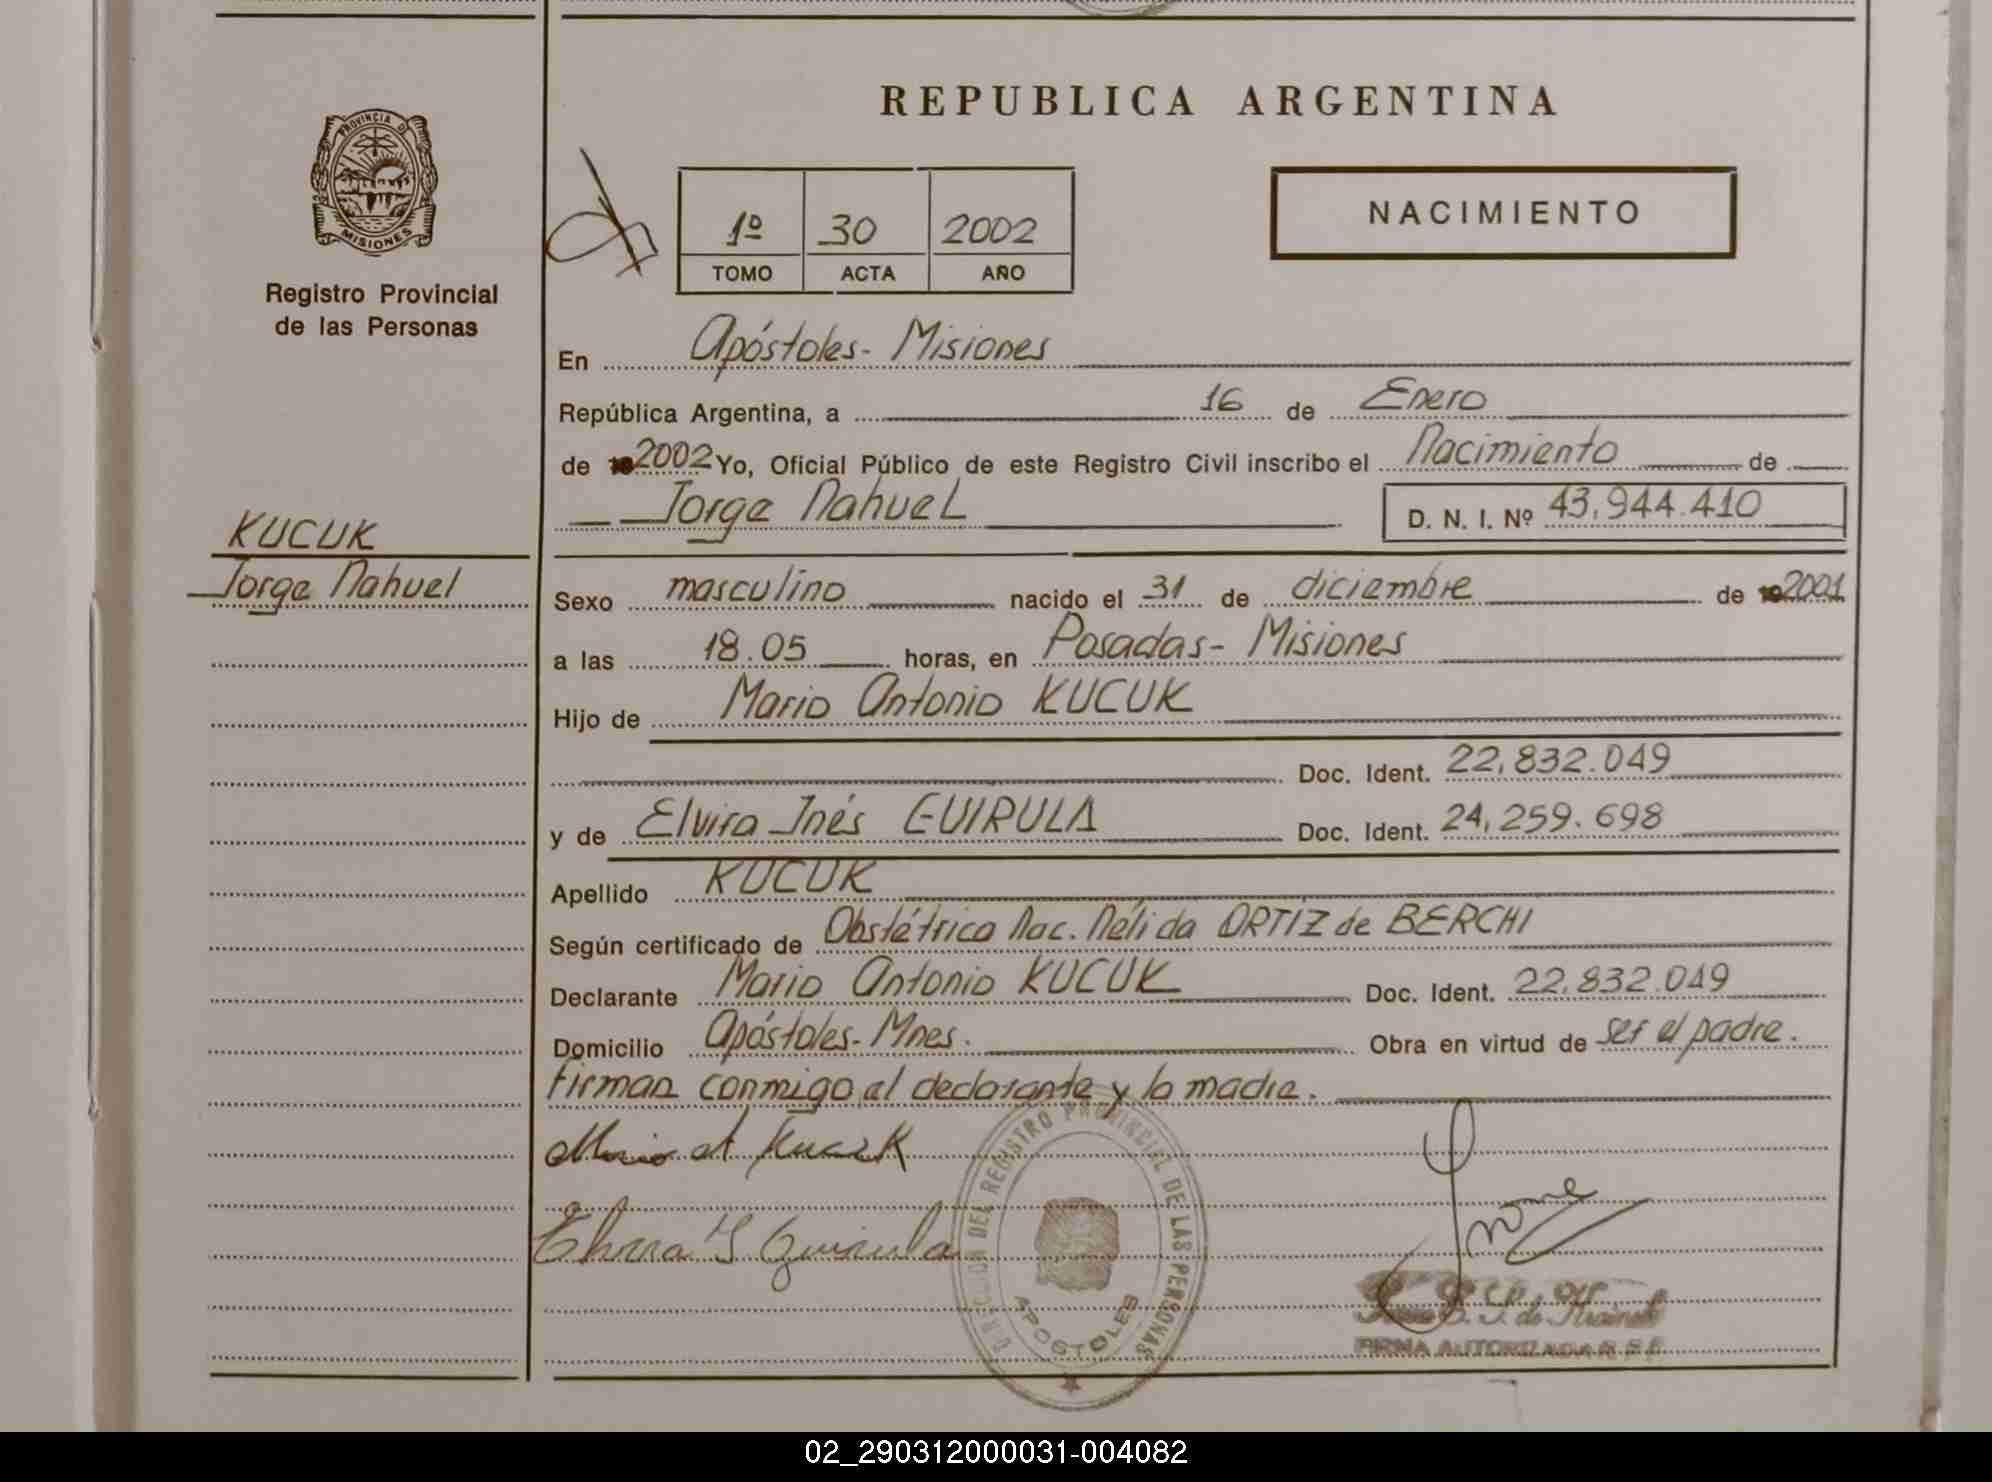 REPUBLICA ARGENTINA
PROVINCIA DE
MISIONES
Registro Provincial
de las Personas
1º 30 2002
TOMO ACTA AÑO
NACIMIENTO
En Apóstoles- Misiones
República Argentina, a 16 de Enero
de 2002 Yo, Oficial Público de este Registro Civil inscribo el Nacimiento de
Jorge Nahuel D. N. I. Nº 43.944.410
KUCUK
Jorge Nahuel
Sexo masculino nacido el 31 de diciembre de 2001
a las 18.05 horas, en Posadas- Misiones
Hijo de Mario Antonio KUCUK
Doc. Ident. 22.832.049
y de Elvira Inés GUIRULA Doc. Ident. 24.259.698
Apellido KUCUK
Según certificado de Obstétrica Nac. Nélida ORTIZ de BERCHI
Declarante Mario Antonio KUCUK Doc. Ident. 22.832.049
Domicilio Apóstoles- Mnes. Obra en virtud de ser el padre.
Firman conmigo el declarante y la madre.
Mario A Kucuk
Elvira I Guirula
DIRECCION DEL REGISTRO PROVINCIAL DE LAS PERSONAS
APOSTOLES
FIRMA AUTORIZADA
02_290312000031-004082